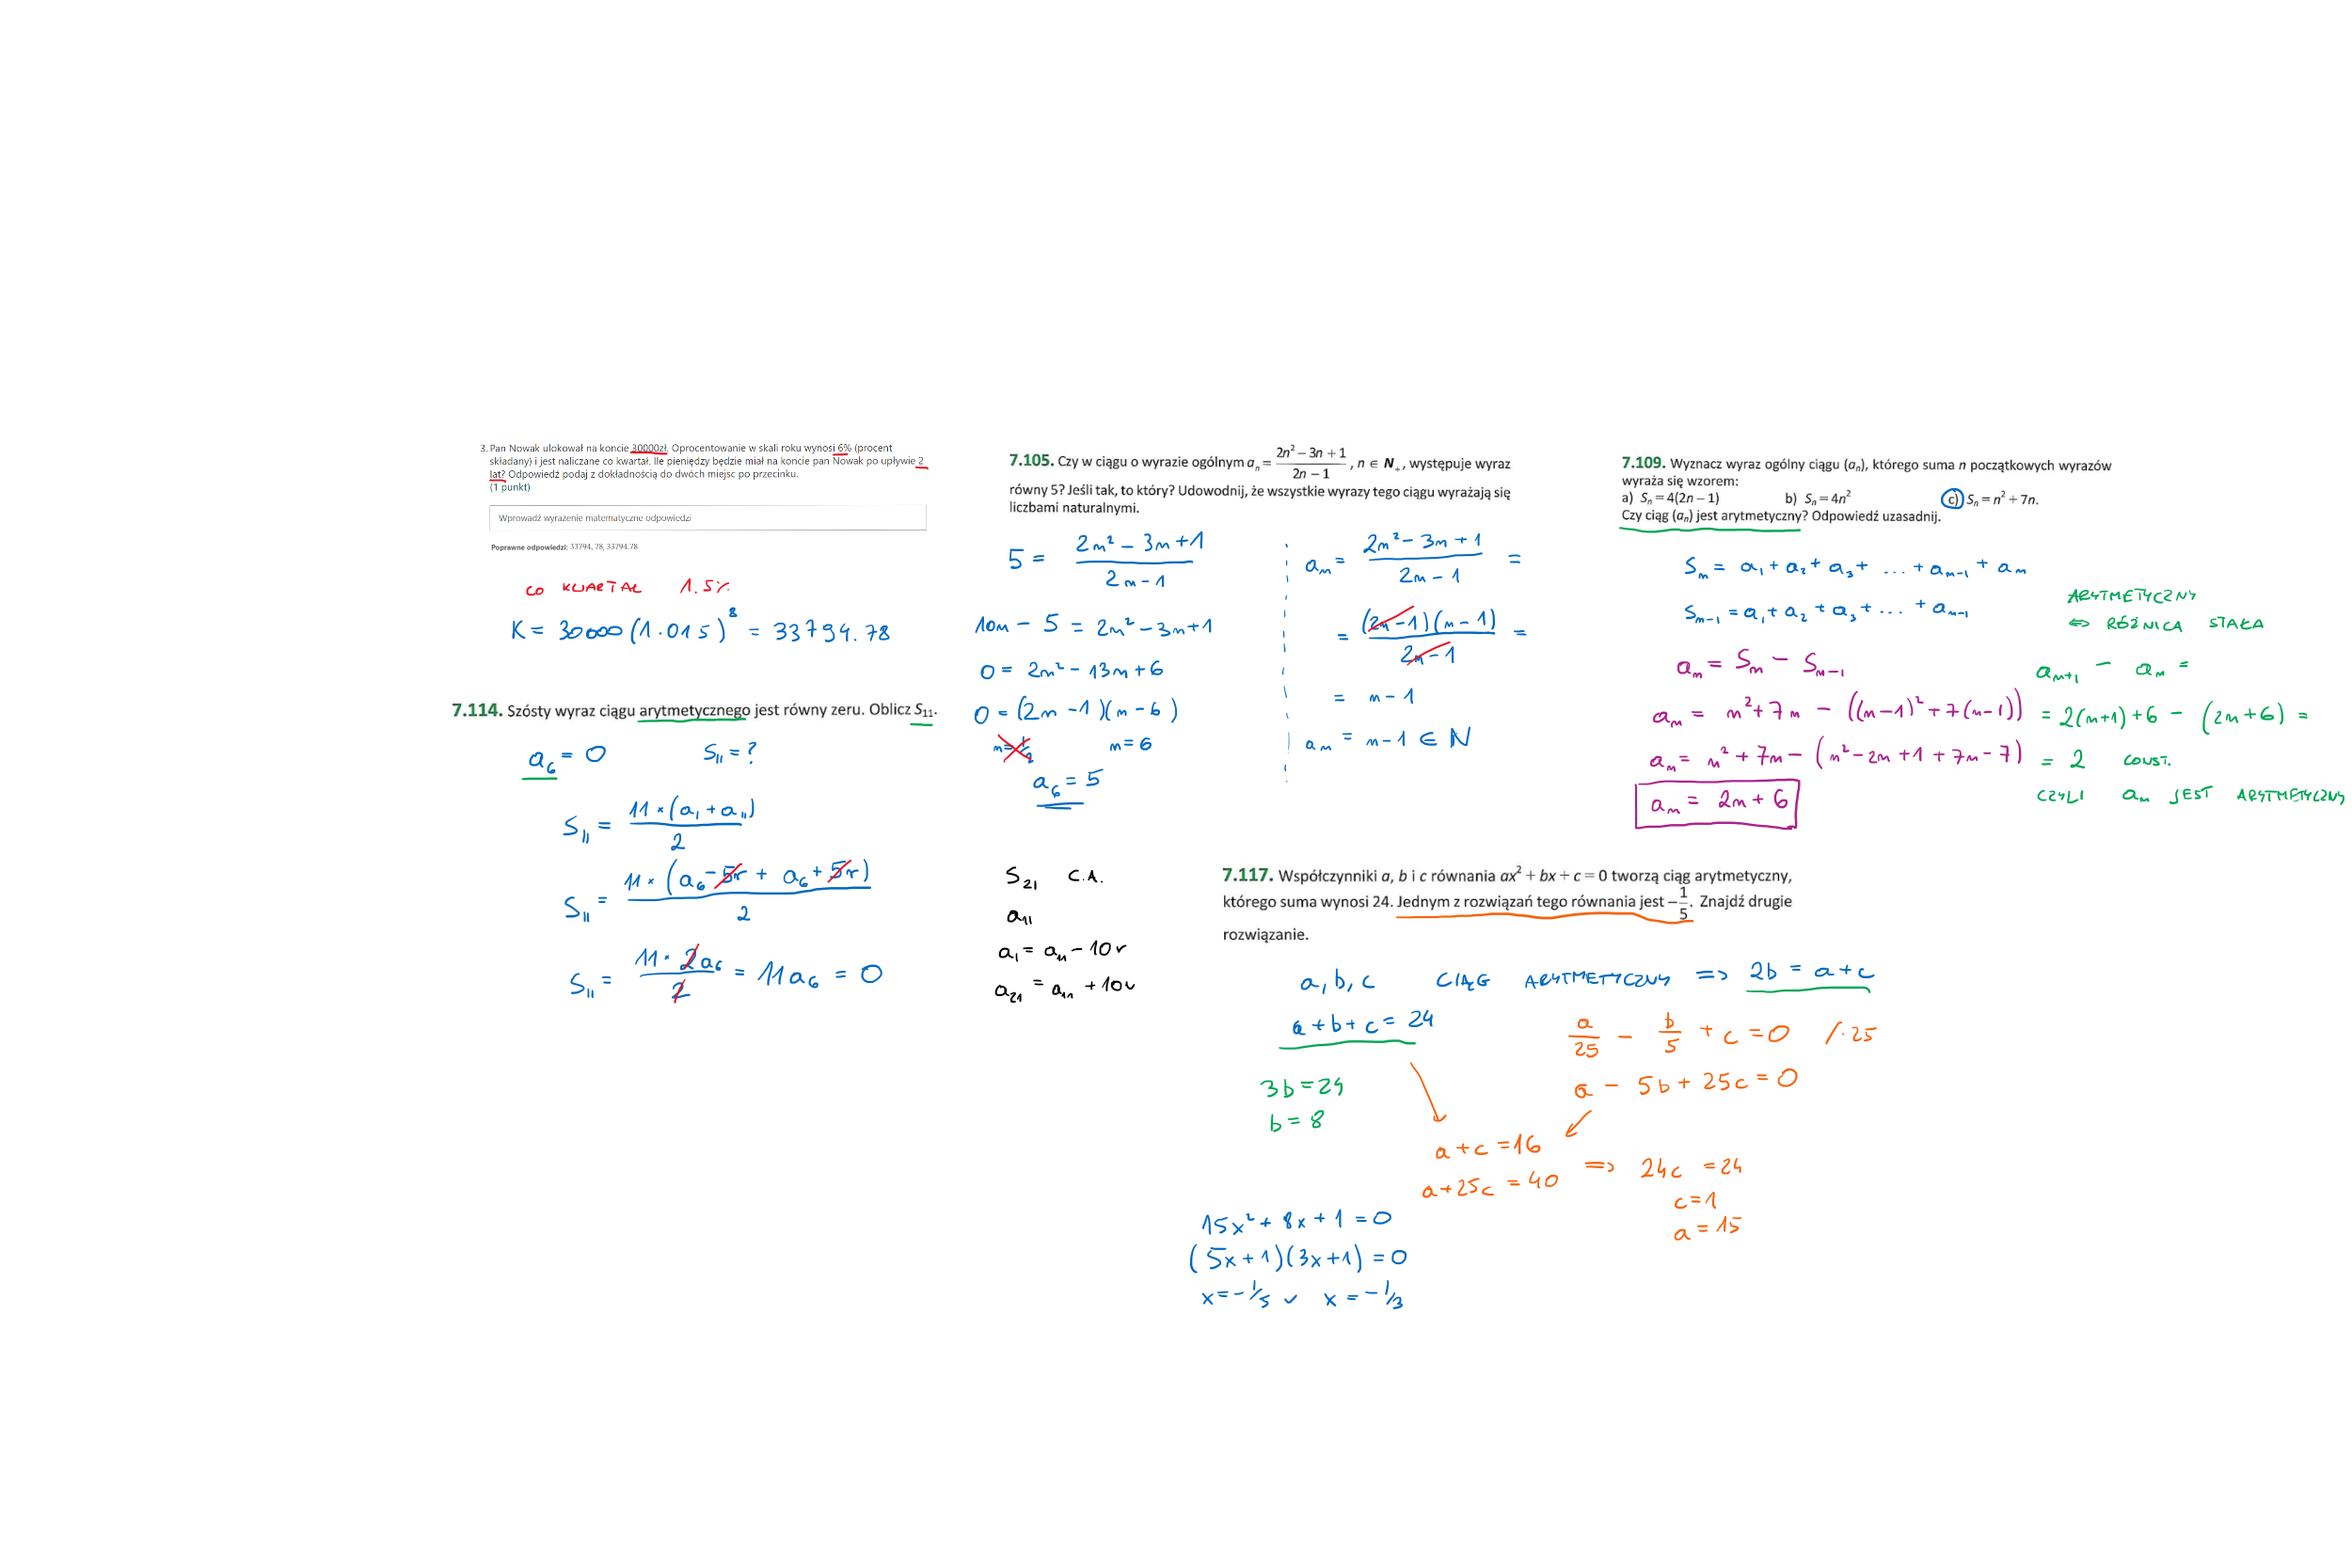 3. Pan Nowak ulokował na koncie 30000zł. Oprocentowanie w skali roku wynosi 6% (procent
składany) i jest naliczane co kwartał. Ile pieniędzy będzie miał na koncie pan Nowak po upływie 2
lat? Odpowiedź podaj z dokładnością do dwóch miejsc po przecinku.
(1 punkt)
Wprowadź wyrażenie matematyczne odpowiedzi
Poprawne odpowiedzi: 33794, 78, 33794.78
CO KWARTAŁ 1.5%
K = 30000 (1.015)^8 = 33794.78
7.114. Szósty wyraz ciągu arytmetycznego jest równy zeru. Oblicz S₁₁.
a₆ = 0 S₁₁ = ?
S₁₁ = 11·(a₁ + a₁₁) / 2
S₁₁ = 11·(a₆ - 5r + a₆ + 5r) / 2
S₁₁ = 11·2a₆ / 2 = 11a₆ = 0
7.105. Czy w ciągu o wyrazie ogólnym aₙ = (2n² – 3n + 1) / (2n – 1), n ∈ N₊, występuje wyraz
równy 5? Jeśli tak, to który? Udowodnij, że wszystkie wyrazy tego ciągu wyrażają się
liczbami naturalnymi.
5 = (2n² - 3n + 1) / (2n - 1)
10n - 5 = 2n² - 3n + 1
0 = 2n² - 13n + 6
0 = (2n - 1)(n - 6)
n = 1/2 n = 6
a₆ = 5
aₙ = (2n² - 3n + 1) / (2n - 1) =
= (2n - 1)(n - 1) / (2n - 1) =
= n - 1
aₙ = n - 1 ∈ N
S₂₁ C.A.
a₁₁
a₁ = a₁₁ - 10r
a₂₁ = a₁₁ + 10r
7.109. Wyznacz wyraz ogólny ciągu (aₙ), którego suma n początkowych wyrazów
wyraża się wzorem:
a) Sₙ = 4(2n – 1) b) Sₙ = 4n² c) Sₙ = n² + 7n.
Czy ciąg (aₙ) jest arytmetyczny? Odpowiedź uzasadnij.
Sₙ = a₁ + a₂ + a₃ + ... + aₙ₋₁ + aₙ
Sₙ₋₁ = a₁ + a₂ + a₃ + ... + aₙ₋₁
aₙ = Sₙ - Sₙ₋₁
aₙ = n² + 7n - ((n-1)² + 7(n-1))
aₙ = n² + 7n - (n² - 2n + 1 + 7n - 7)
aₙ = 2n + 6
ARYTMETYCZNY
⇔ RÓŻNICA STAŁA
aₙ₊₁ - aₙ =
= 2(n+1) + 6 - (2n + 6) =
= 2 CONST.
CZYLI aₙ JEST ARYTMETYCZNY
7.117. Współczynniki a, b i c równania ax² + bx + c = 0 tworzą ciąg arytmetyczny,
którego suma wynosi 24. Jednym z rozwiązań tego równania jest –1/5. Znajdź drugie
rozwiązanie.
a, b, c CIĄG ARYTMETYCZNY => 2b = a + c
a + b + c = 24
3b = 24
b = 8
a/25 - b/5 + c = 0 /·25
a - 5b + 25c = 0
a + c = 16
a + 25c = 40 => 24c = 24
c = 1
a = 15
15x² + 8x + 1 = 0
(5x + 1)(3x + 1) = 0
x = -1/5 ∨ x = -1/3